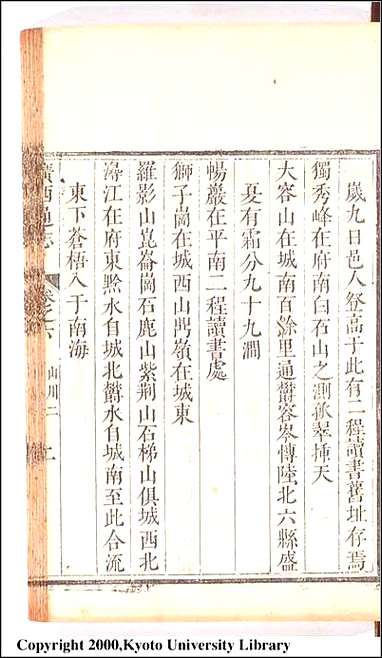 歲九日邑人登高于此有二程讀書舊址存焉
獨秀峰在府南白石山之側秋翠揷天
大容山在城南百餘里通鬱容岑博陸北六縣盛
夏有霜分九十九澗
暢巖在平南二程讀書處
獅子崗在城西山門嶺在城東
羅影山崑崙崗石鹿山紫荆山石梯山俱城西北
潯江在府東黔水自城北鬱水自城南至此合流
東下蒼梧入于南海
廣西通志
卷之六
山川二
Copyright 2000,Kyoto University Library